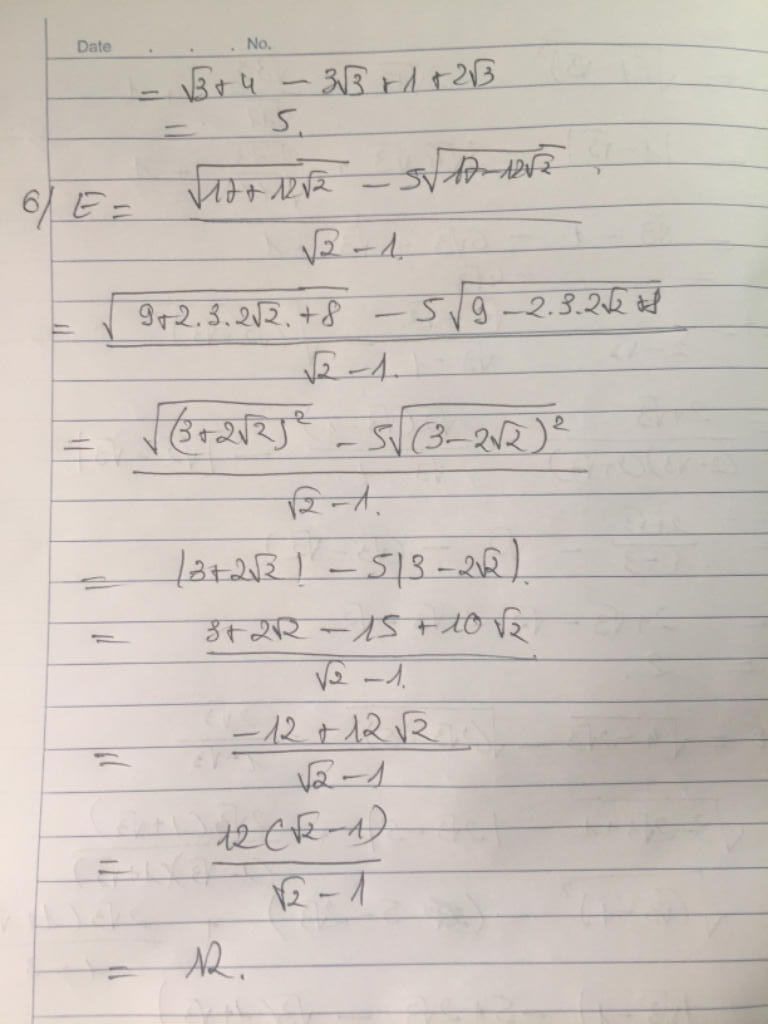 Date . . . No.
= √3 + 4 - 3√3 + 1 + 2√3
= 5.
6/ E = (√(17 + 12√2) - 5√(17 - 12√2)) / (√2 - 1).
= (√(9 + 2.3.2√2. + 8) - 5√(9 - 2.3.2√2 + 8)) / (√2 - 1).
= (√((3 + 2√2)²) - 5√((3 - 2√2)²)) / (√2 - 1).
= |3 + 2√2| - 5|3 - 2√2|.
= (3 + 2√2 - 15 + 10√2) / (√2 - 1).
= (-12 + 12√2) / (√2 - 1)
= 12(√2 - 1) / (√2 - 1)
= 12.